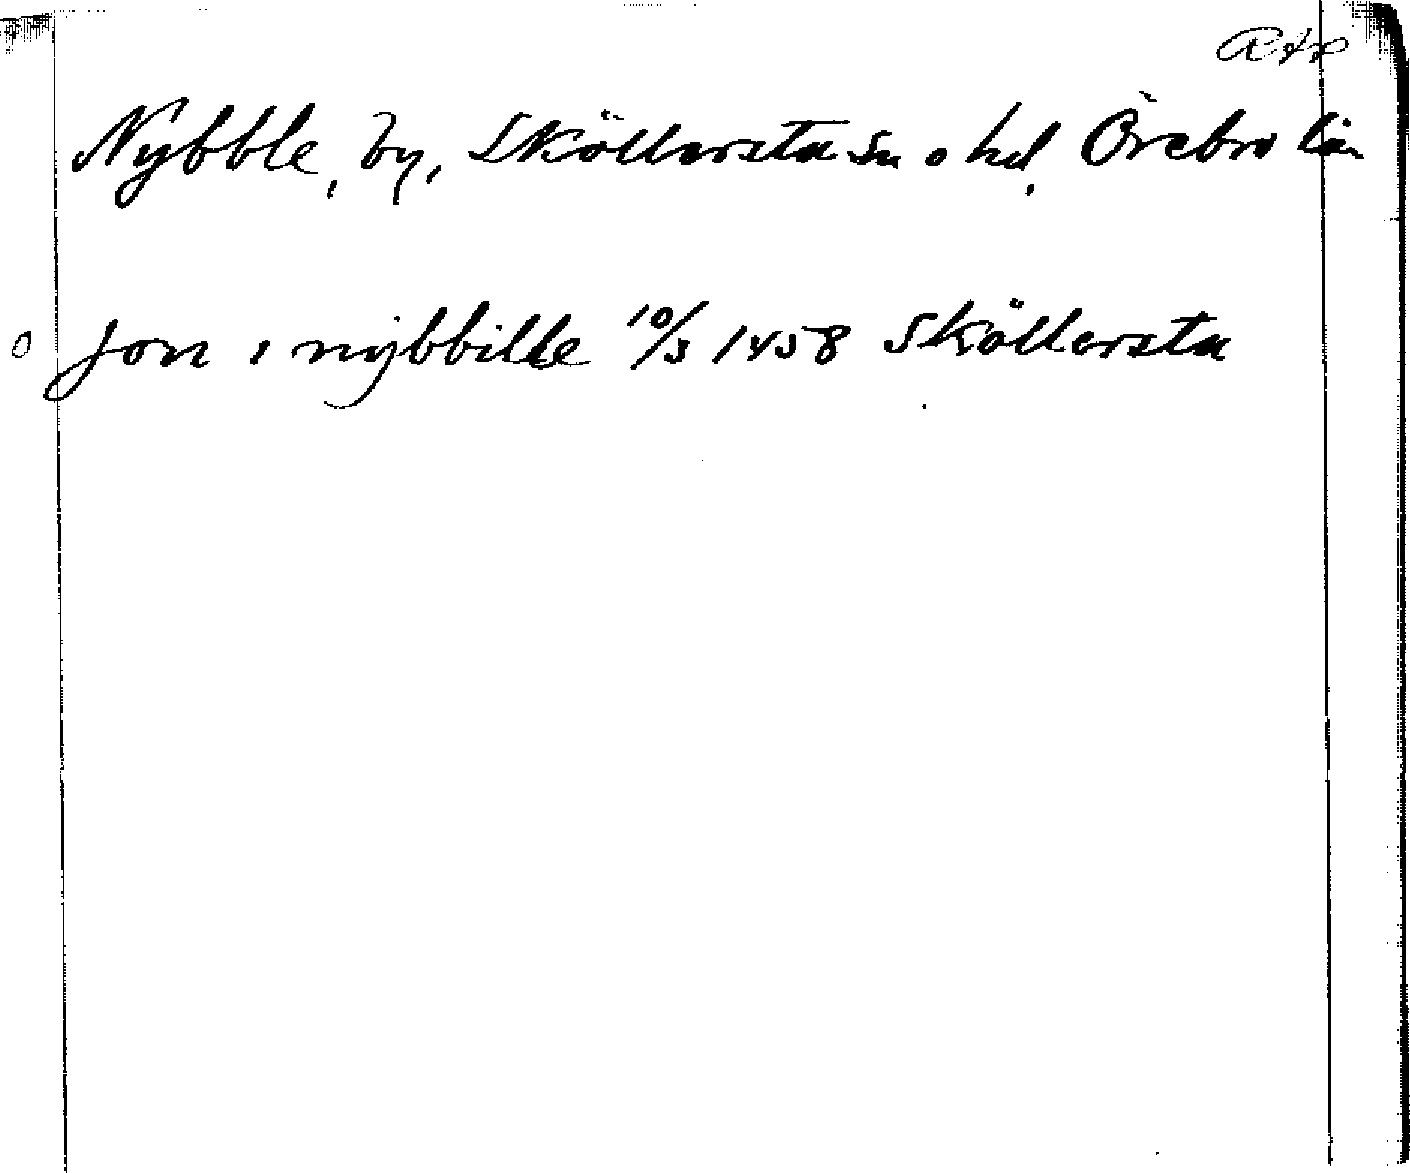 Nybble, by, Sköllersta sn o hd, Örebro län
o jon i nybbille 10/3 1458 Sköllersta